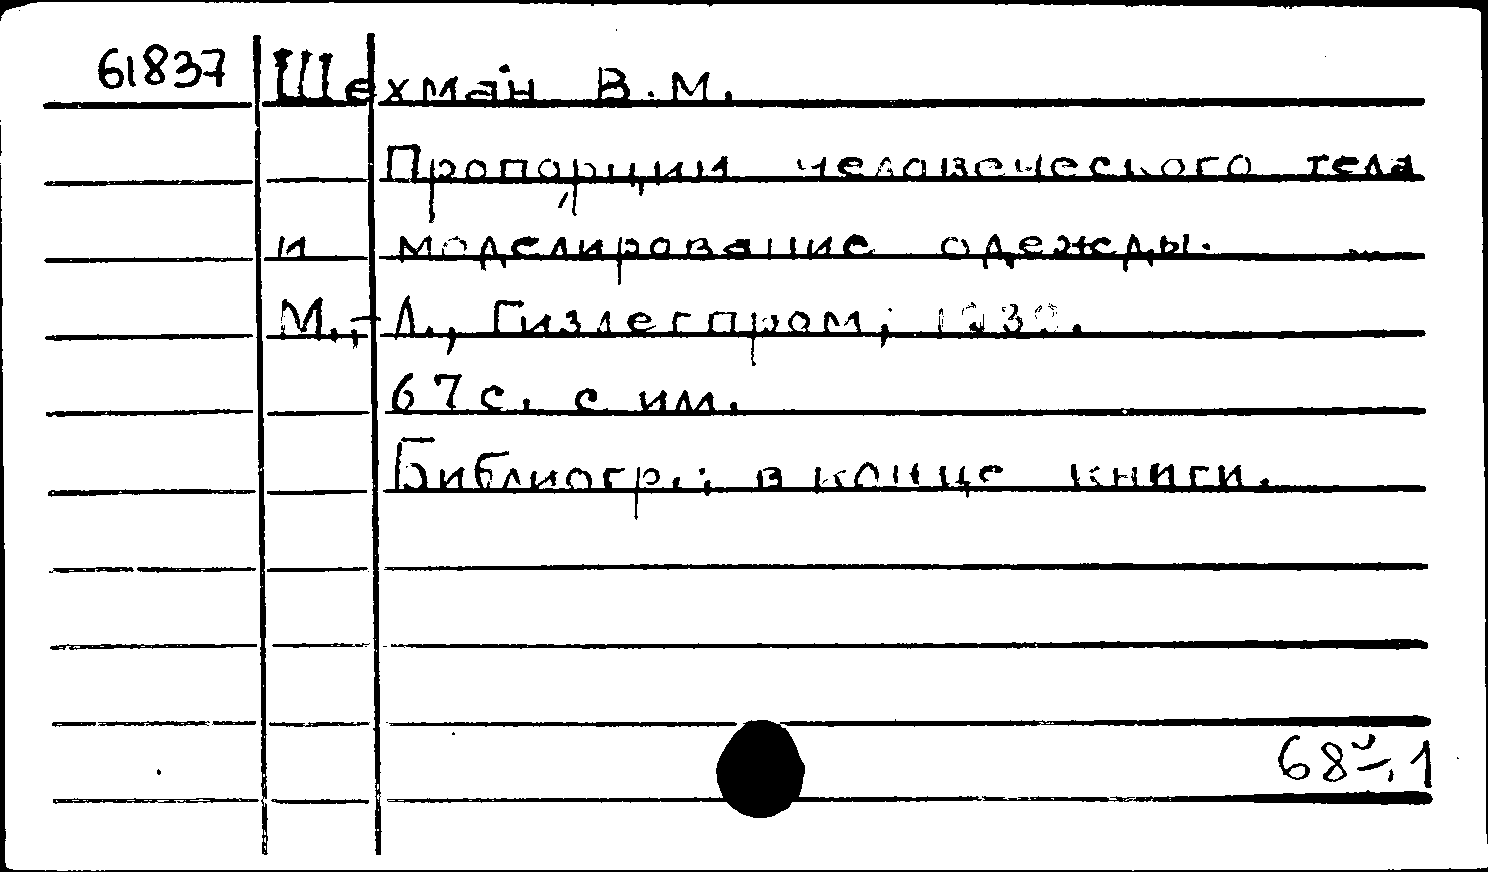 61837 Шехман В.М.
Пропорции человеческого тела
и моделирование одежды.
М.,-Л., Гизлегпром,
67 с. с ил.
Библиогр.: в конце книги.